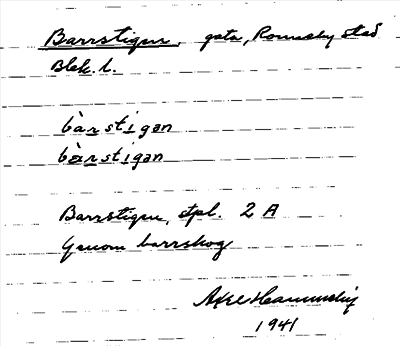 Barrstigen, gata, Ronneby stad
Blek. l.
bàrstigan
bàrstigan
Barrstigen, stpl. 2 A
Genom barrskog
Axel
1941